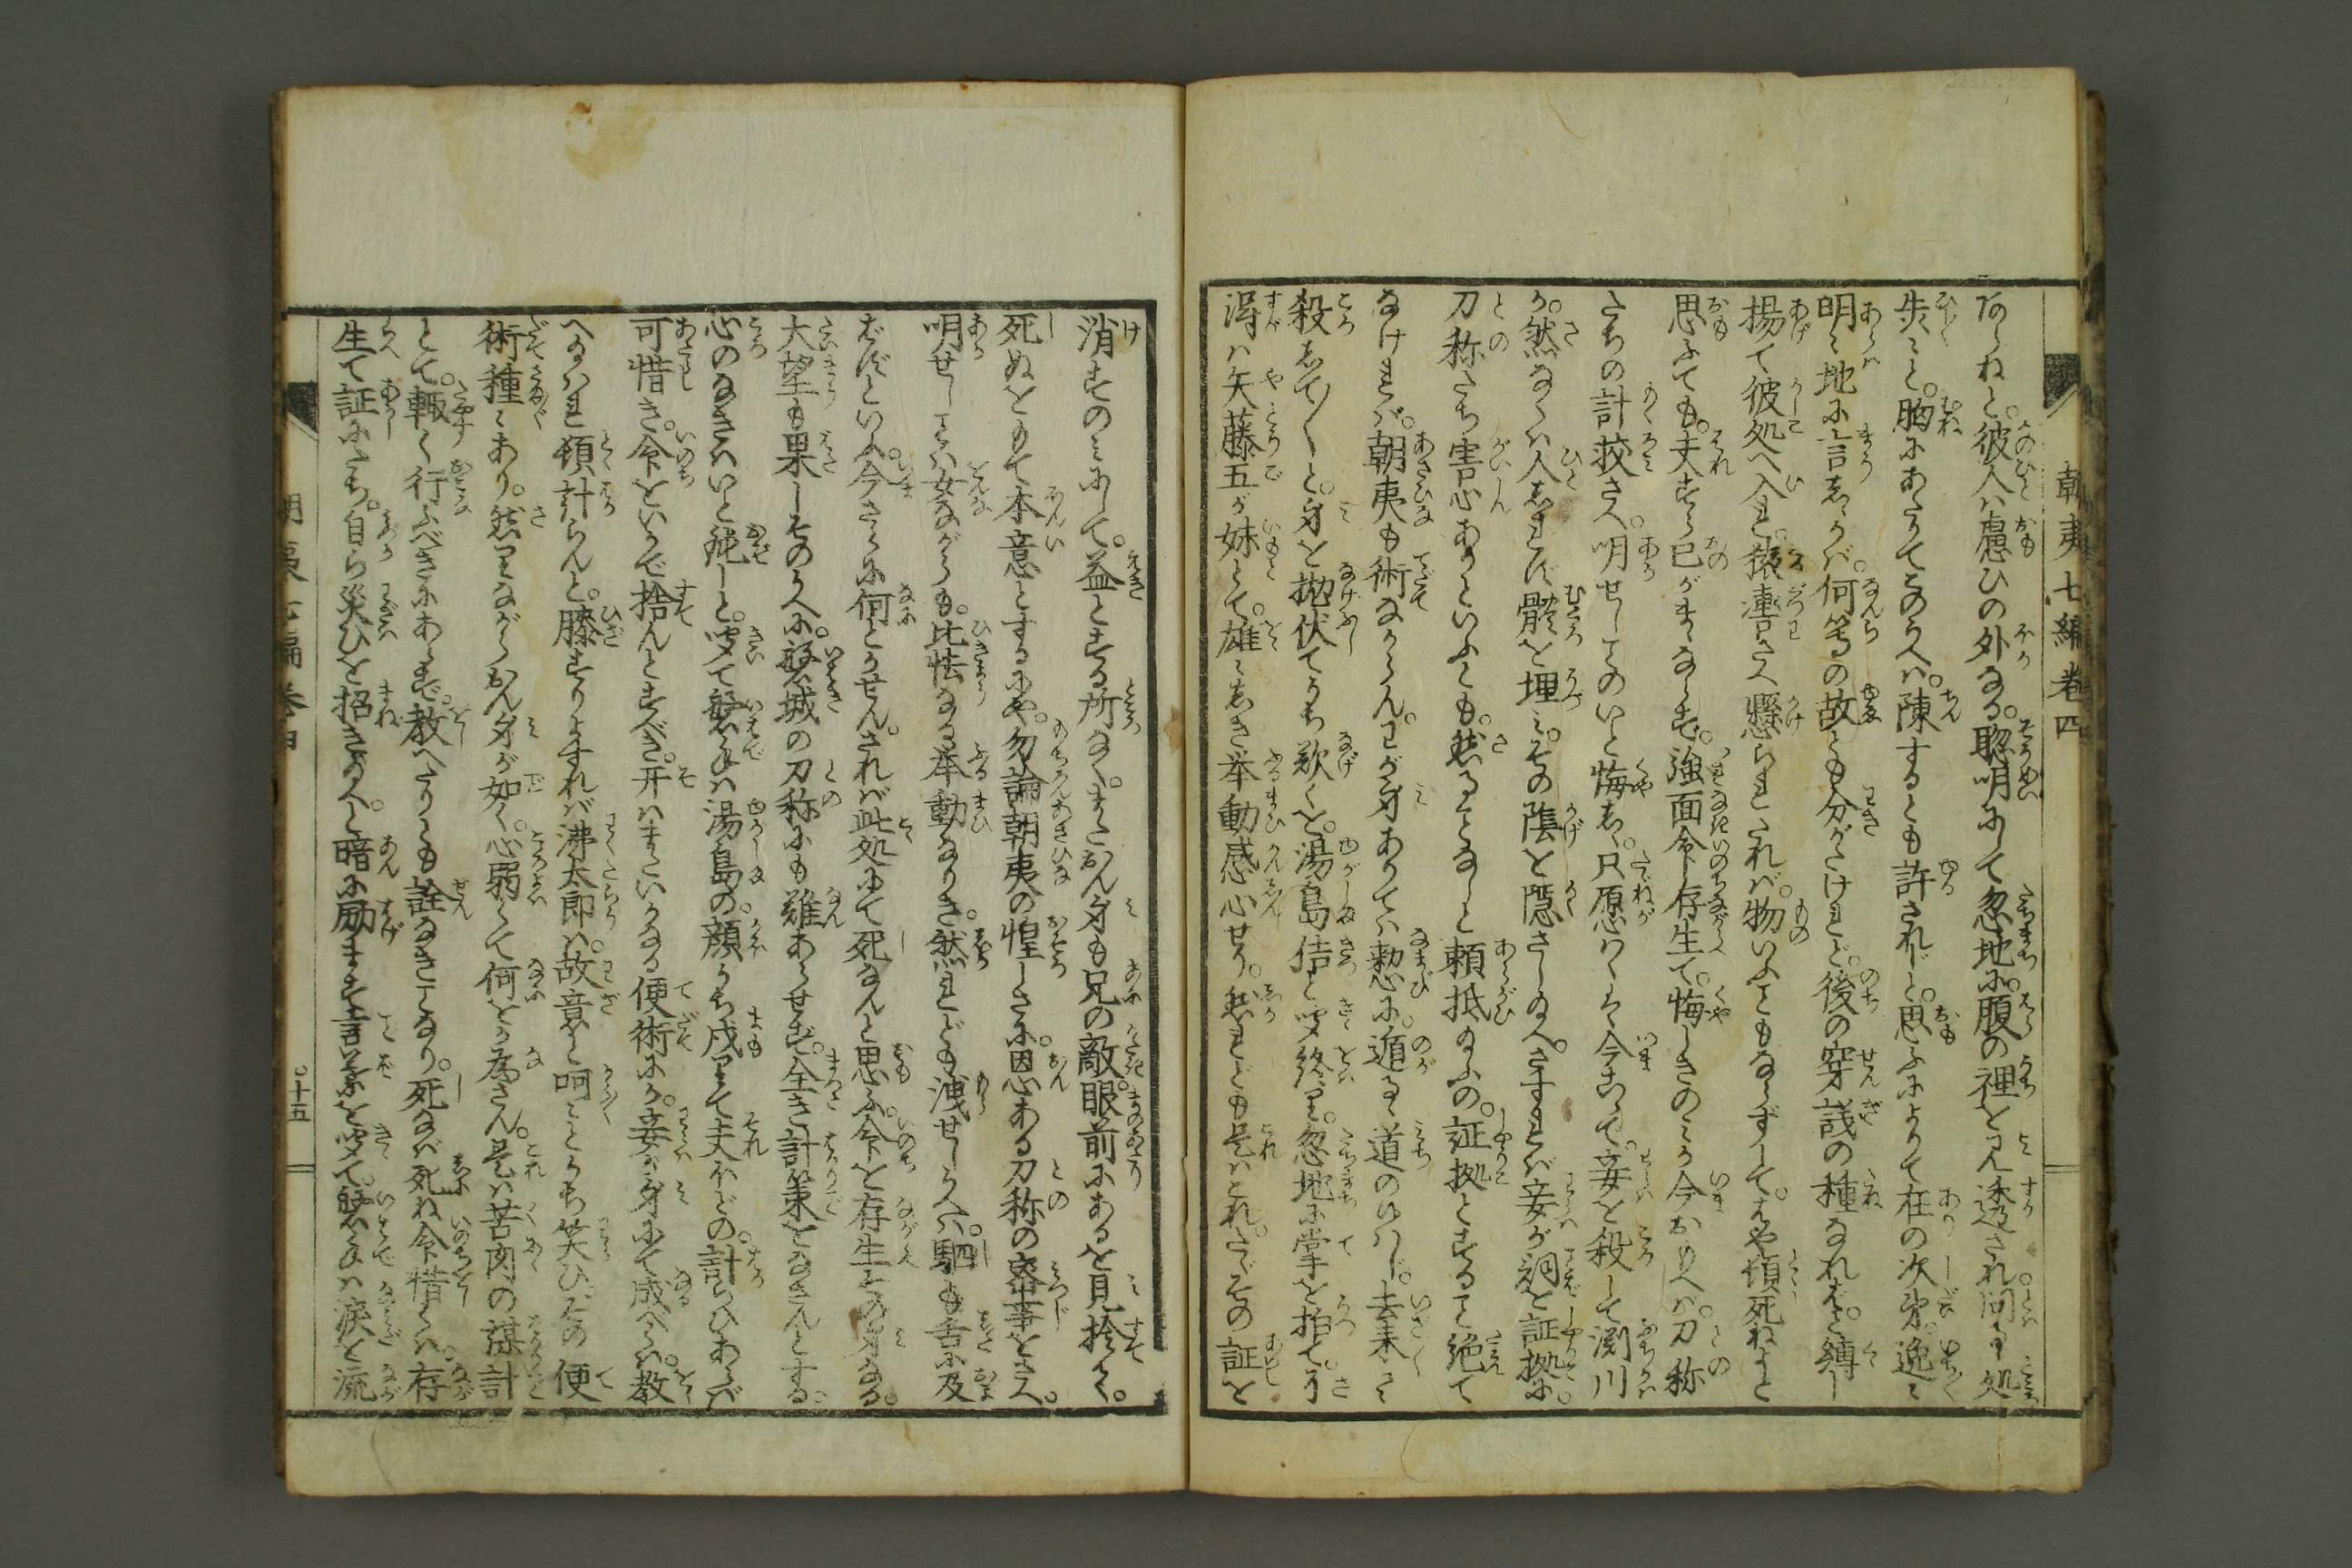 朝夷七編巻四
あらねど。彼人は慮ひの外なる。聡明にして忽地に。腹の裡を見透され。問るゝ処
歩々と。胸にあたりてなのうへは。陳するとも許されじと。思ふによりて在の次第。逸々
明々地に言しかば。何等の故とも分がたけれど。後の穿議の種なればと。縛し
揚て彼処へ入れ。猿轡さへ懸られたれば。物いふこともならずして。はや頓死ねよと
思ふても。夫すら己がまゝならず。強面命存生て。悔しきのみか今おもへば。刀称
たちの計較さへ。明せしことのいと悔し。只願はくは今こゝで。妾を殺して淵川
か。然なくは人しれず。骸を埋み。その蔭を隠さしゐへ。さすれば妾が詞を証拠に。
刀称たち害心ありといふとも。然ることなしと頼抵ゐふの。証拠とすること絶て
なければ。朝夷も術なからん。わが身ありては懃に。遁るゝ道のゐはじ。去来々々
殺して〳〵と。身を抛伏てうち歎くを。湯島佶と聞終り。忽地に掌を拍て。
得は矢藤五が妹とて。雄々しき挙動感心せり。然れども是はとれ。さぞその証を
消すのみにして。益とする所なく。またおん身も兄の敵。眼前にあるを見捨て。
死ぬをもて本意とするにや。勿論朝夷の惶しさに。恩ある刀称の密事をさへ。
明せしことは女ながらも。比怯なる挙動なりき。然れども洩せしうへは。駟も舌に及
ばずといふ。今さらに何とかせん。されば此処にて死なんと思ふ。命を存生その身なる。
大望も果しそのうへに。磐城の刀称にも難あらせず。全き計策をなさんとする
心のなきはいと鈍しと。聞て磐手は湯島の。顔うち戍りて夫ほどの。計らひあらば
可惜き。命をといかで捨んとすべき。开はまたいかなる便術にか。妾が身にて成べくは。教
へなはれ頓計らんと。膝すりよすれば沸太郎は。故意と呵々とうち笑ひ。その便
術種々あり。然りながらおん身が如く。心弱くて何をか為さん。是は苦肉の謀計
とて。輙く行ふべきにあらず。教へたりとも詮なきことなり。死なば死ね命惜くは。存
生て証にたち。自ら災ひを招きゐへと。暗に励ます言葉を聞て。磐手は涙を流
朝夷七編巻四
○十五